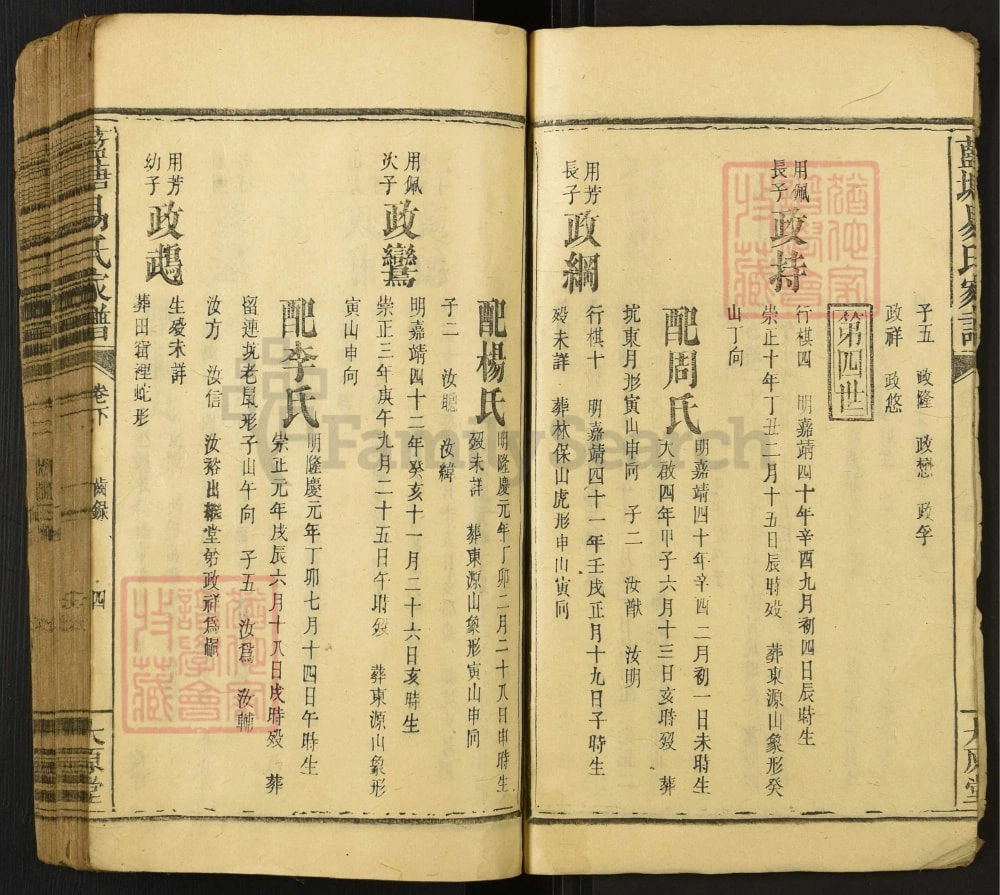 子五 政隆 政戀 政孚
政祥 政悠
第四世
用佩長子 政持 行棋四 明嘉靖四十年辛酉九月初四日辰時生
崇正十年丁丑二月十五日辰時歿 葬東源山象形癸
山丁向
配周氏 明嘉靖四十年辛酉二月初一日未時生
大啟四年甲子六月十三日亥時歿 葬
坑東月形寅山申向 子二 汝猷 汝明
用芳長子 政綱 行棋十 明嘉靖四十一年壬戌正月十九日子時生
歿未詳 葬林保山虎形申山寅向
配楊氏 明隆慶元年丁卯二月二十八日申時生
歿未詳 葬東源山象形寅山申向
子二 汝聰 汝緯
用佩次子 政鸞 明嘉靖四十二年癸亥十一月二十六日亥時生
崇正三年庚午九月二十五日午時歿 葬東源山象形
寅山申向
配李氏 明隆慶元年丁卯七月十四日午時生
崇正元年戊辰六月十八日戌時歿 葬
留連坑老鼠形子山午向 子五 汝爲 汝輔
汝方 汝信 汝裕出繼堂弟政祥爲嗣
用芳幼子 政鵡 生歿未詳
葬田窟裡蛇形
藍塘易氏家譜 卷下 齒錄 四 太原堂